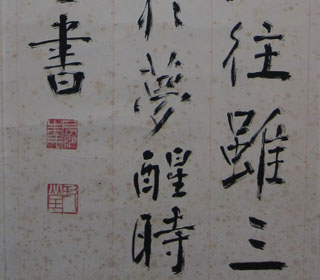 往雖三
於夢醒時
書